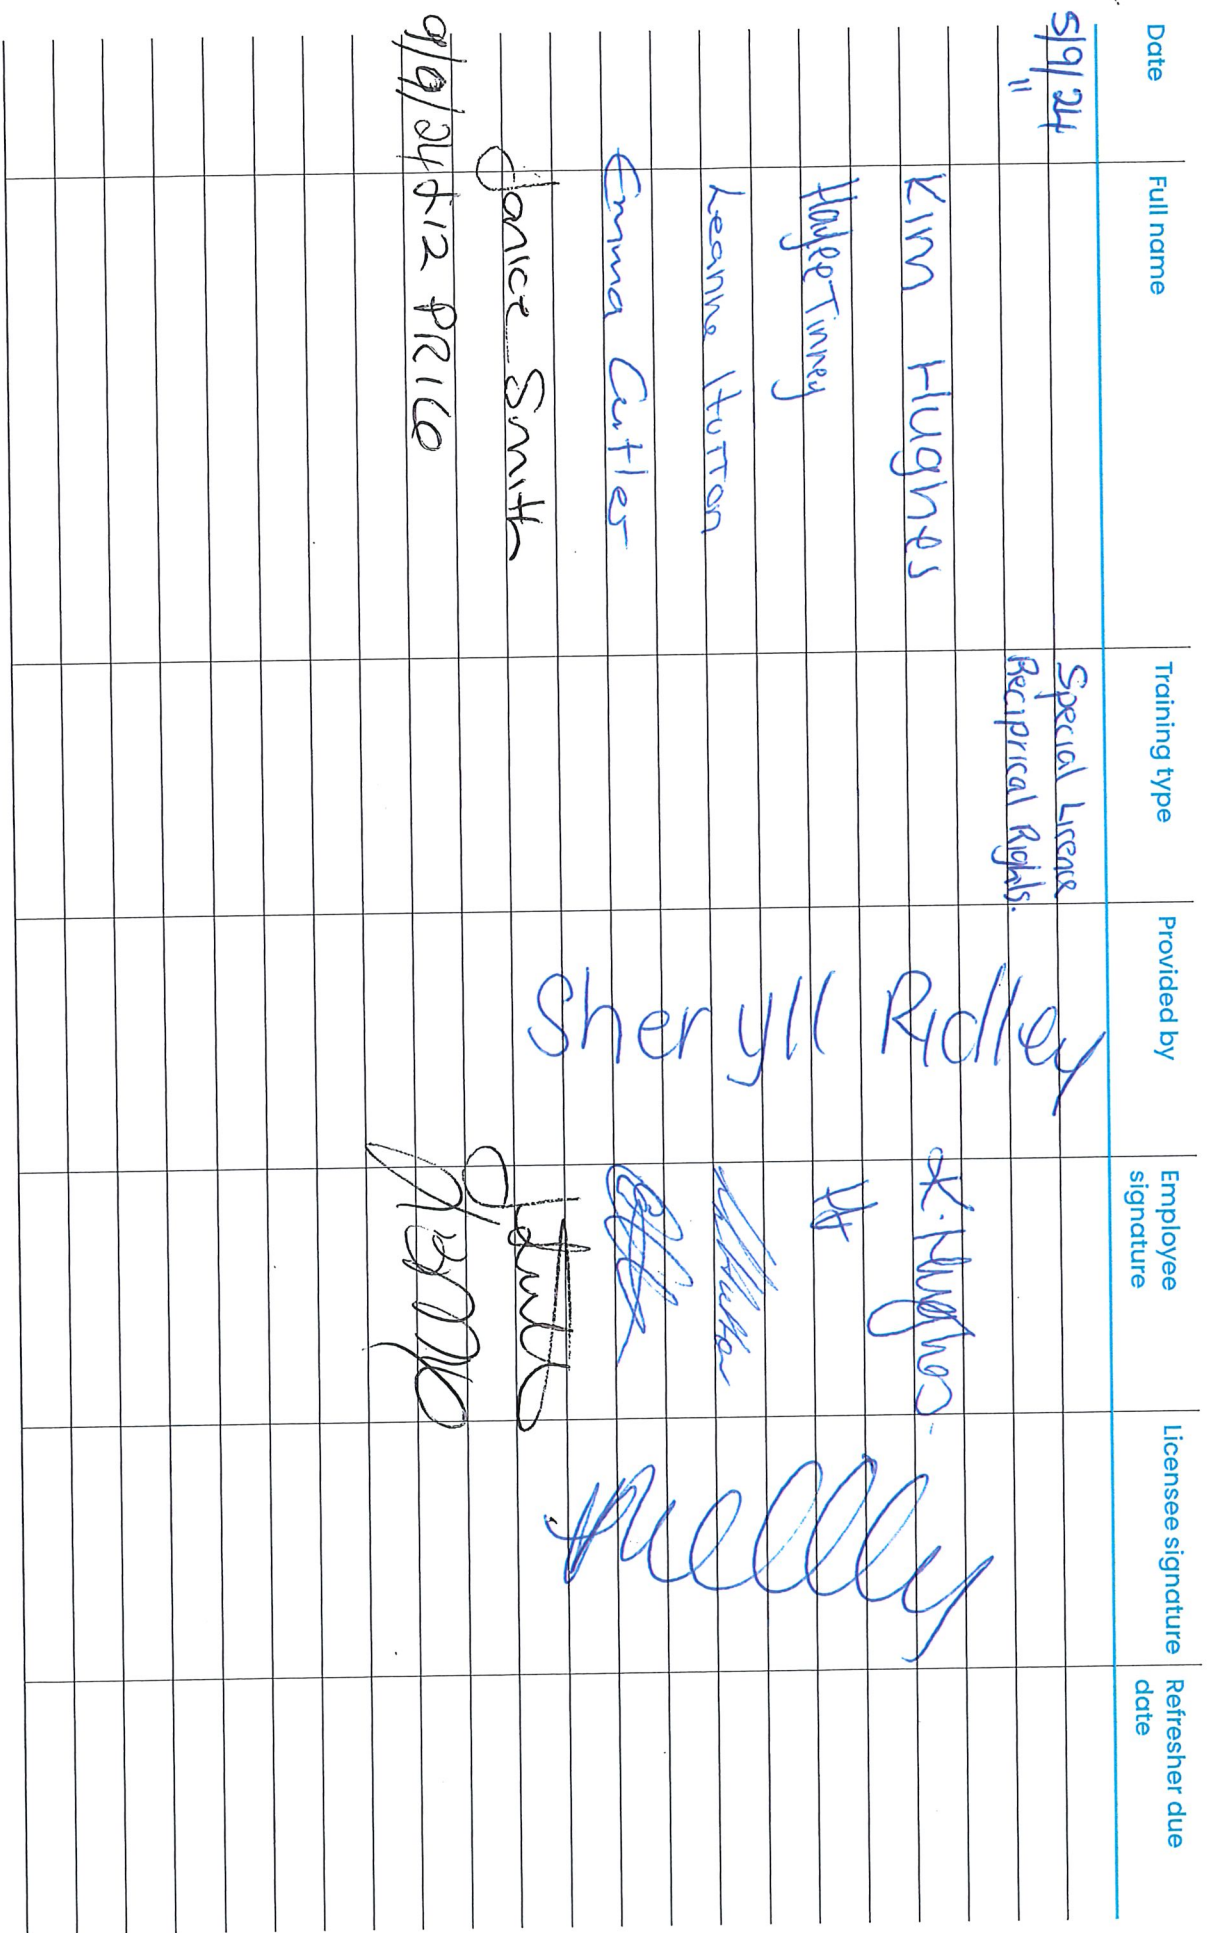 Date Full name Training type Provided by Employee signature Licensee signature Refresher due date
5/9/24 Special Licence
" Reciprical Rights.
Sheryll Ridley
Kim Hughes K. Hughes
Haylee Tinney HT
Leanne Hutton
Emma Cutler
Janice Smith
9/9/24